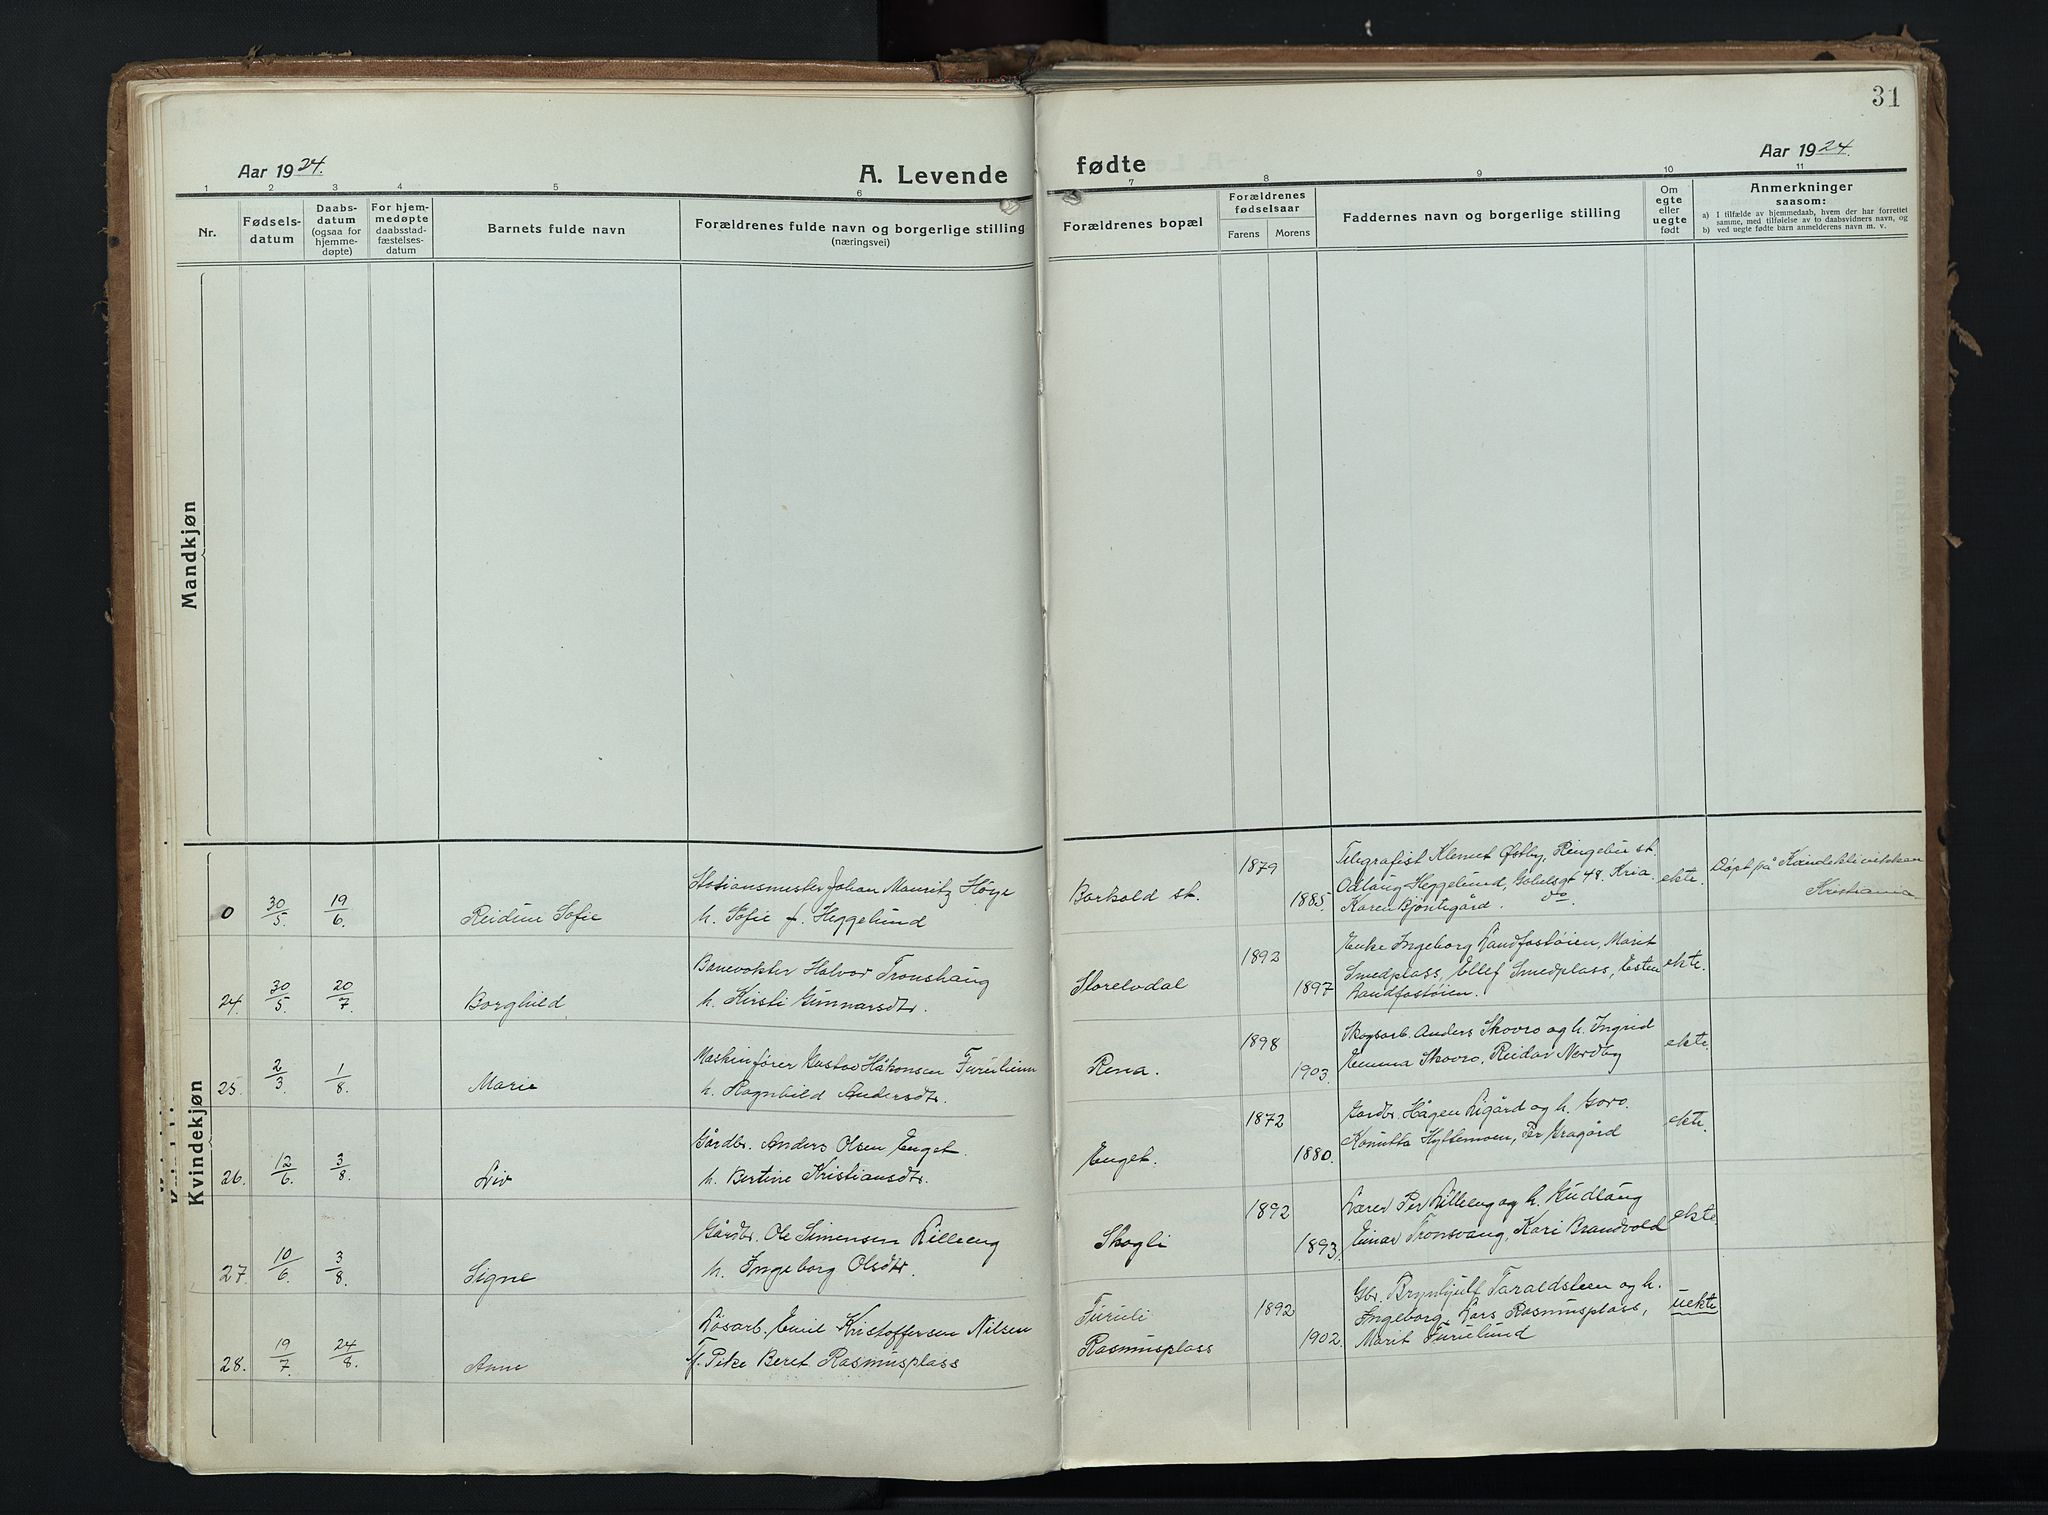 31
Aar 1924.
A. Levende
fødte
Aar 1924.
1 2 3 4 5 6 7 8 9 10 11
Nr.
Fødsels-
datum
Daabs-
datum
(ogsaa for
hjemme-
døpte)
For hjem-
medøpte
daabsstad-
fæstelses-
datum
Barnets fulde navn
Forældrenes fulde navn og borgerlige stilling
(næringsvei)
Forældrenes bopæl
Forældrenes
fødselsaar
Farens
Morens
Faddernes navn og borgerlige stilling
Om
egte
eller
uegte
født
Anmerkninger
saasom:
a) I tilfælde av hjemmedaab, hvem der har forrettet
samme, med tilføielse av to daabsvidners navn, og
b) ved uegte fødte barn anmelderens navn m. v.
Mandkjøn
Kvindekjøn
0
30/5.
19/6.
Reidun Sofie
Stationsmester Johan Mauritz Høye
h. Sofie f. Heggelund
Barkald st.
1879
1885.
Telegrafist Klemet Østby, Ringebu st.
Odlaug Heggelund, Gabelsgt 48. Kria.
Karen Bjøntegård. do.
ekte.
Døpt på Kvindeklinikken
Kristiania
24.
30/5.
20/7.
Borghild.
Banevokter Halvor Tronshaug
h. Kirsti Gunnarsdtr.
Storelvdal
1892
1897
Enke Ingeborg Sandfostøien, Marit
Smedplass, Ellef Smedplass, Esten
Sandfostøien.
ekte.
25.
2/3.
1/8.
Marie
Maskinfører Gustav Håkonsen Furuheim
h. Ragnhild Andersdtr.
Rena.
1898
1903.
Skogsarb. Anders Skovro og h. Ingrid
Emma Skovro, Reidar Nordby
ekte.
26.
12/6.
3/8.
Liv
Gårdbr. Anders Olsen Enget.
h. Bertine Kristiansdtr.
Enget.
1872
1880.
Gårdbr. Hågen Ligård og h. Goro.
Konutta Hyttemoen, Per Kragård
ekte.
27.
10/6.
3/8.
Signe
Gårdbr. Ole Simensen Lilleeng
h. Ingeborg Olsdtr.
Skogli
1892
1893.
Lærer Per Lilleeng og h. Gudlaug
Einar Tronsvang, Kari Brandvold
ekte.
28.
19/7.
24/8.
Anne
Løsarb. Emil Kristoffersen Nilsen
f. Pike Beret Rasmusplass
Furuli
Rasmusplass
1892
1902.
Gbr. Brynhjulf Taraldsteen og h.
Ingeborg, Lars Rasmusplass,
Marit Furulund
uekte